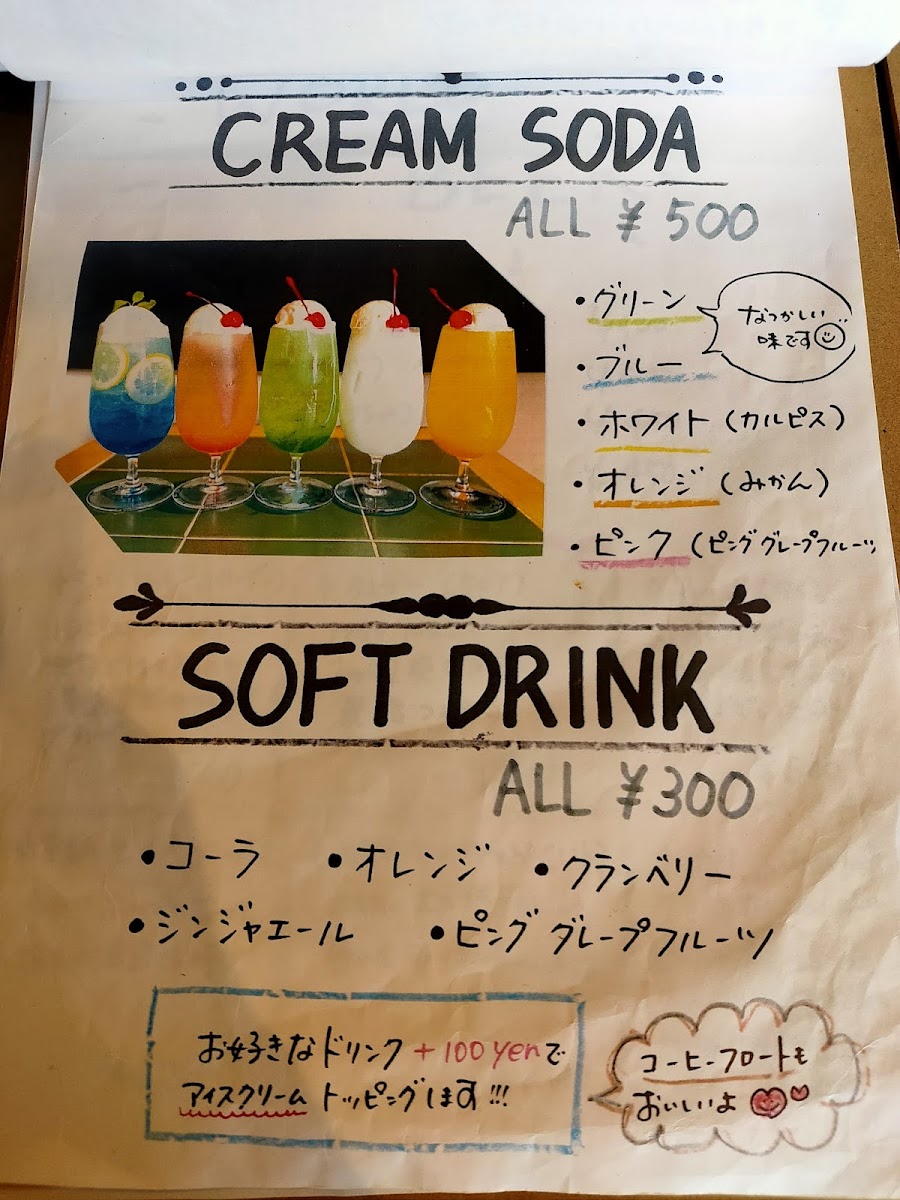 CREAM SODA
ALL ¥500
・グリーン
なつかしい
味です
・ブルー
・ホワイト (カルピス)
・オレンジ (みかん)
・ピンク (ピンググレープフルーツ
SOFT DRINK
ALL ¥300
・コーラ ・オレンジ ・クランベリー
・ジンジャエール ・ピンググレープフルーツ
お好きなドリンク +100yenで
アイスクリームトッピングします!!!
コーヒーフロートも
おいしいよ